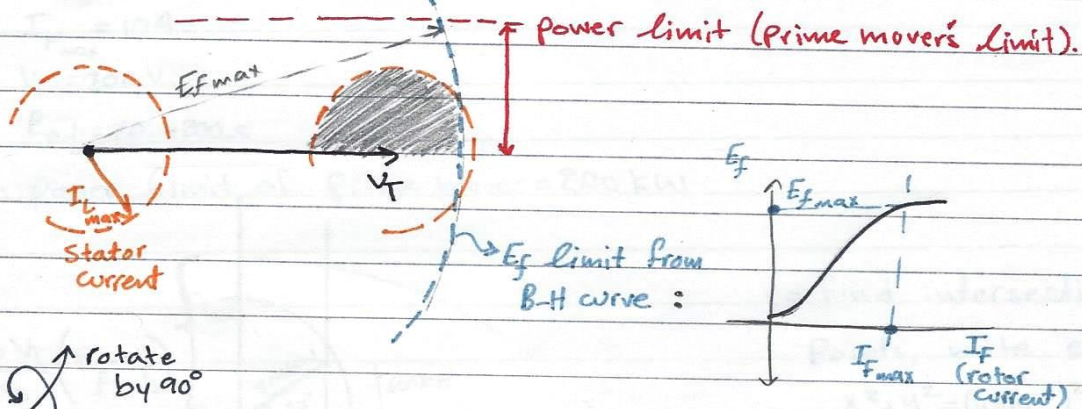 power limit (prime mover's limit).
Ef max
VT
IL max
Stator
current
Ef limit from
B-H curve :
Ef
Ef max
IF max
IF
(rotor
current)
rotate
by 90°